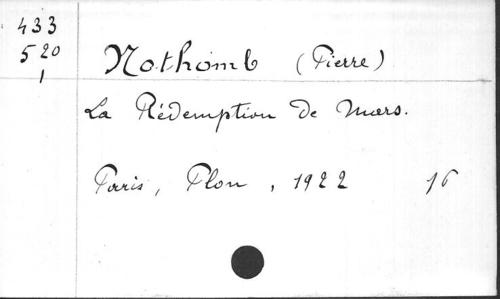 433
520
1
Nothomb (Pierre)
La Rédemption de Mars.
Paris, Plon, 1922 16